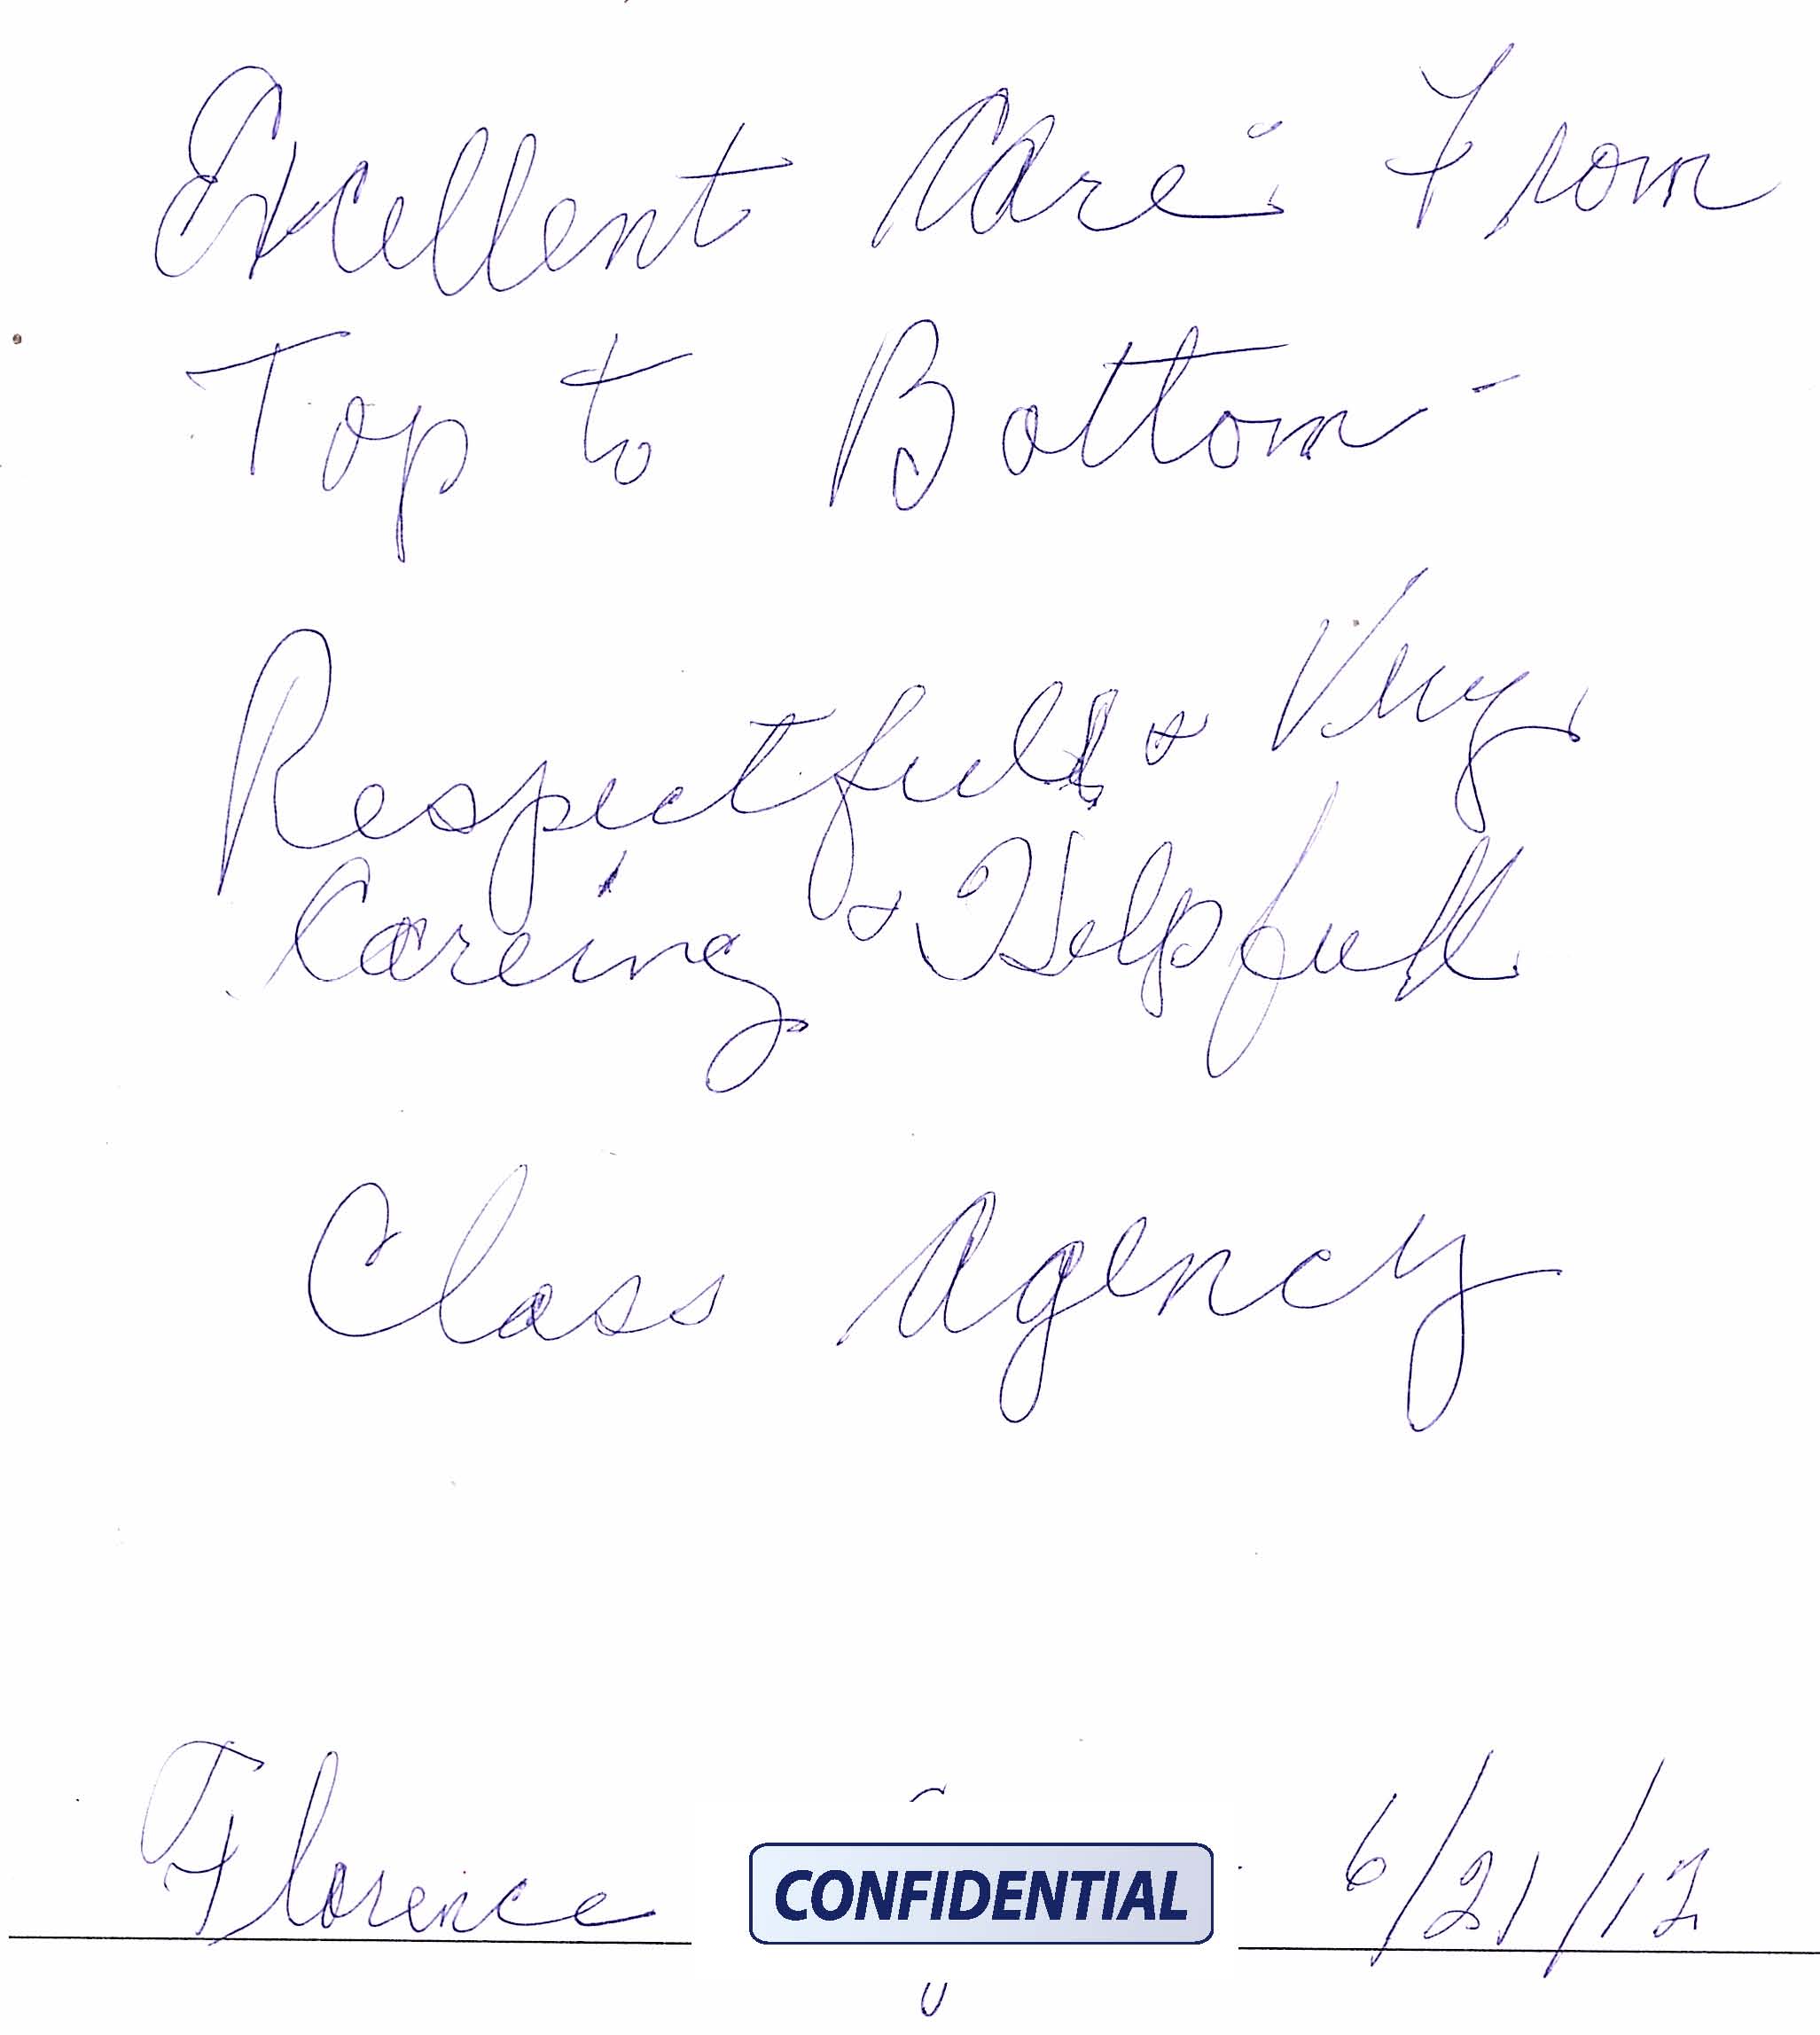 Excellent Care. From
Top to Bottom -
Respectfull & Very
Careing & Helpfull
Class Agency
Florence CONFIDENTIAL 6/21/12